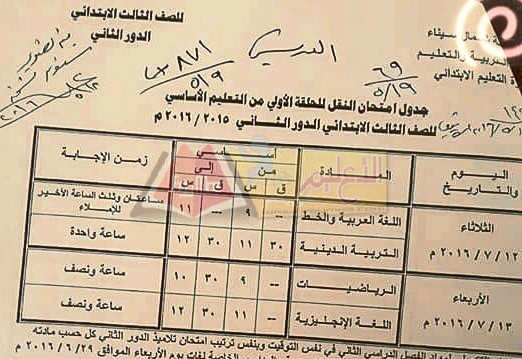 للصف الثالث الابتدائي
الدور الثاني
شمال سيناء
التربية والتعليم
التعليم الابتدائي
جدول امتحان النقل للحلقة الأولي من التعليم الأساسي
للصف الثالث الابتدائي الدور الثاني ٢٠١٥ / ٢٠١٦ م
اليوم والتاريخ المادة أساسي من إلى زمن الإجابة
ق س ق س
الثلاثاء ١٢ / ٧ / ٢٠١٦ م
اللغة العربية والخط -- ٩ -- ١١ ساعتان وثلث الساعة الأخير للإملاء
التربية الدينية ٣٠ ١١ ٣٠ ١٢ ساعة واحدة
الأربعاء ١٣ / ٧ / ٢٠١٦ م
الرياضيات -- ٩ ٣٠ ١٠ ساعة ونصف
اللغة الإنجليزية -- ١١ ٣٠ ١٢ ساعة ونصف
الفصل الدراسي الثاني في نفس التوقيت وبنفس ترتيب امتحان تلاميذ الدور الثاني كل حسب مادته
الخاصة لغات يوم الأربعاء الموافق ٢٩ / ٦ / ٢٠١٦